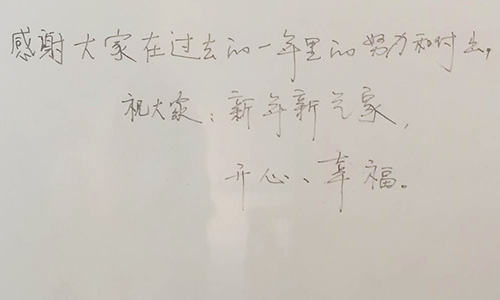 感谢大家在过去的一年里的努力和付出,
祝大家：新年新气象,
开心、幸福。